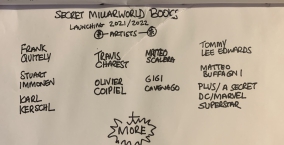 SECRET MILLARWORLD BOOKS
LAUNCHING 2021/2022
ARTISTS
FRANK
QUITELY
STUART
IMMONEN
KARL
KERSCHL
TRAVIS
CHAREST
OLIVIER
COIPEL
MATTEO
SCALERA
GIGI
CAVENAGO
TOMMY
LEE EDWARDS
MATTEO
BUFFAGNI
PLUS/A SECRET
DC/MARVEL
SUPERSTAR
MORE